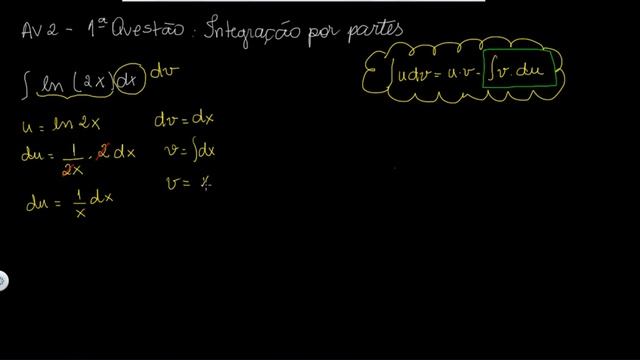 AV2 - 1ª Questão: Integração por partes
∫ ln(2x) dx dv
∫u dv = u.v - ∫v.du
u = ln 2x dv = dx
du = 1/2x · 2 dx v = ∫dx
du = 1/x dx v =